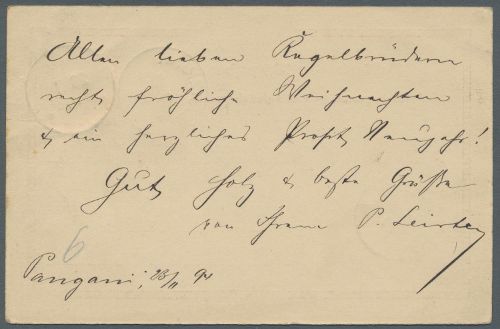 Allen lieben Kegelbrüdern
recht fröhliche Weihnachten
& ein herzliches Prosit Neujahr!
Gut Holz & beste Grüße
von Ihrem P.
6
Pangani, 23/11 94